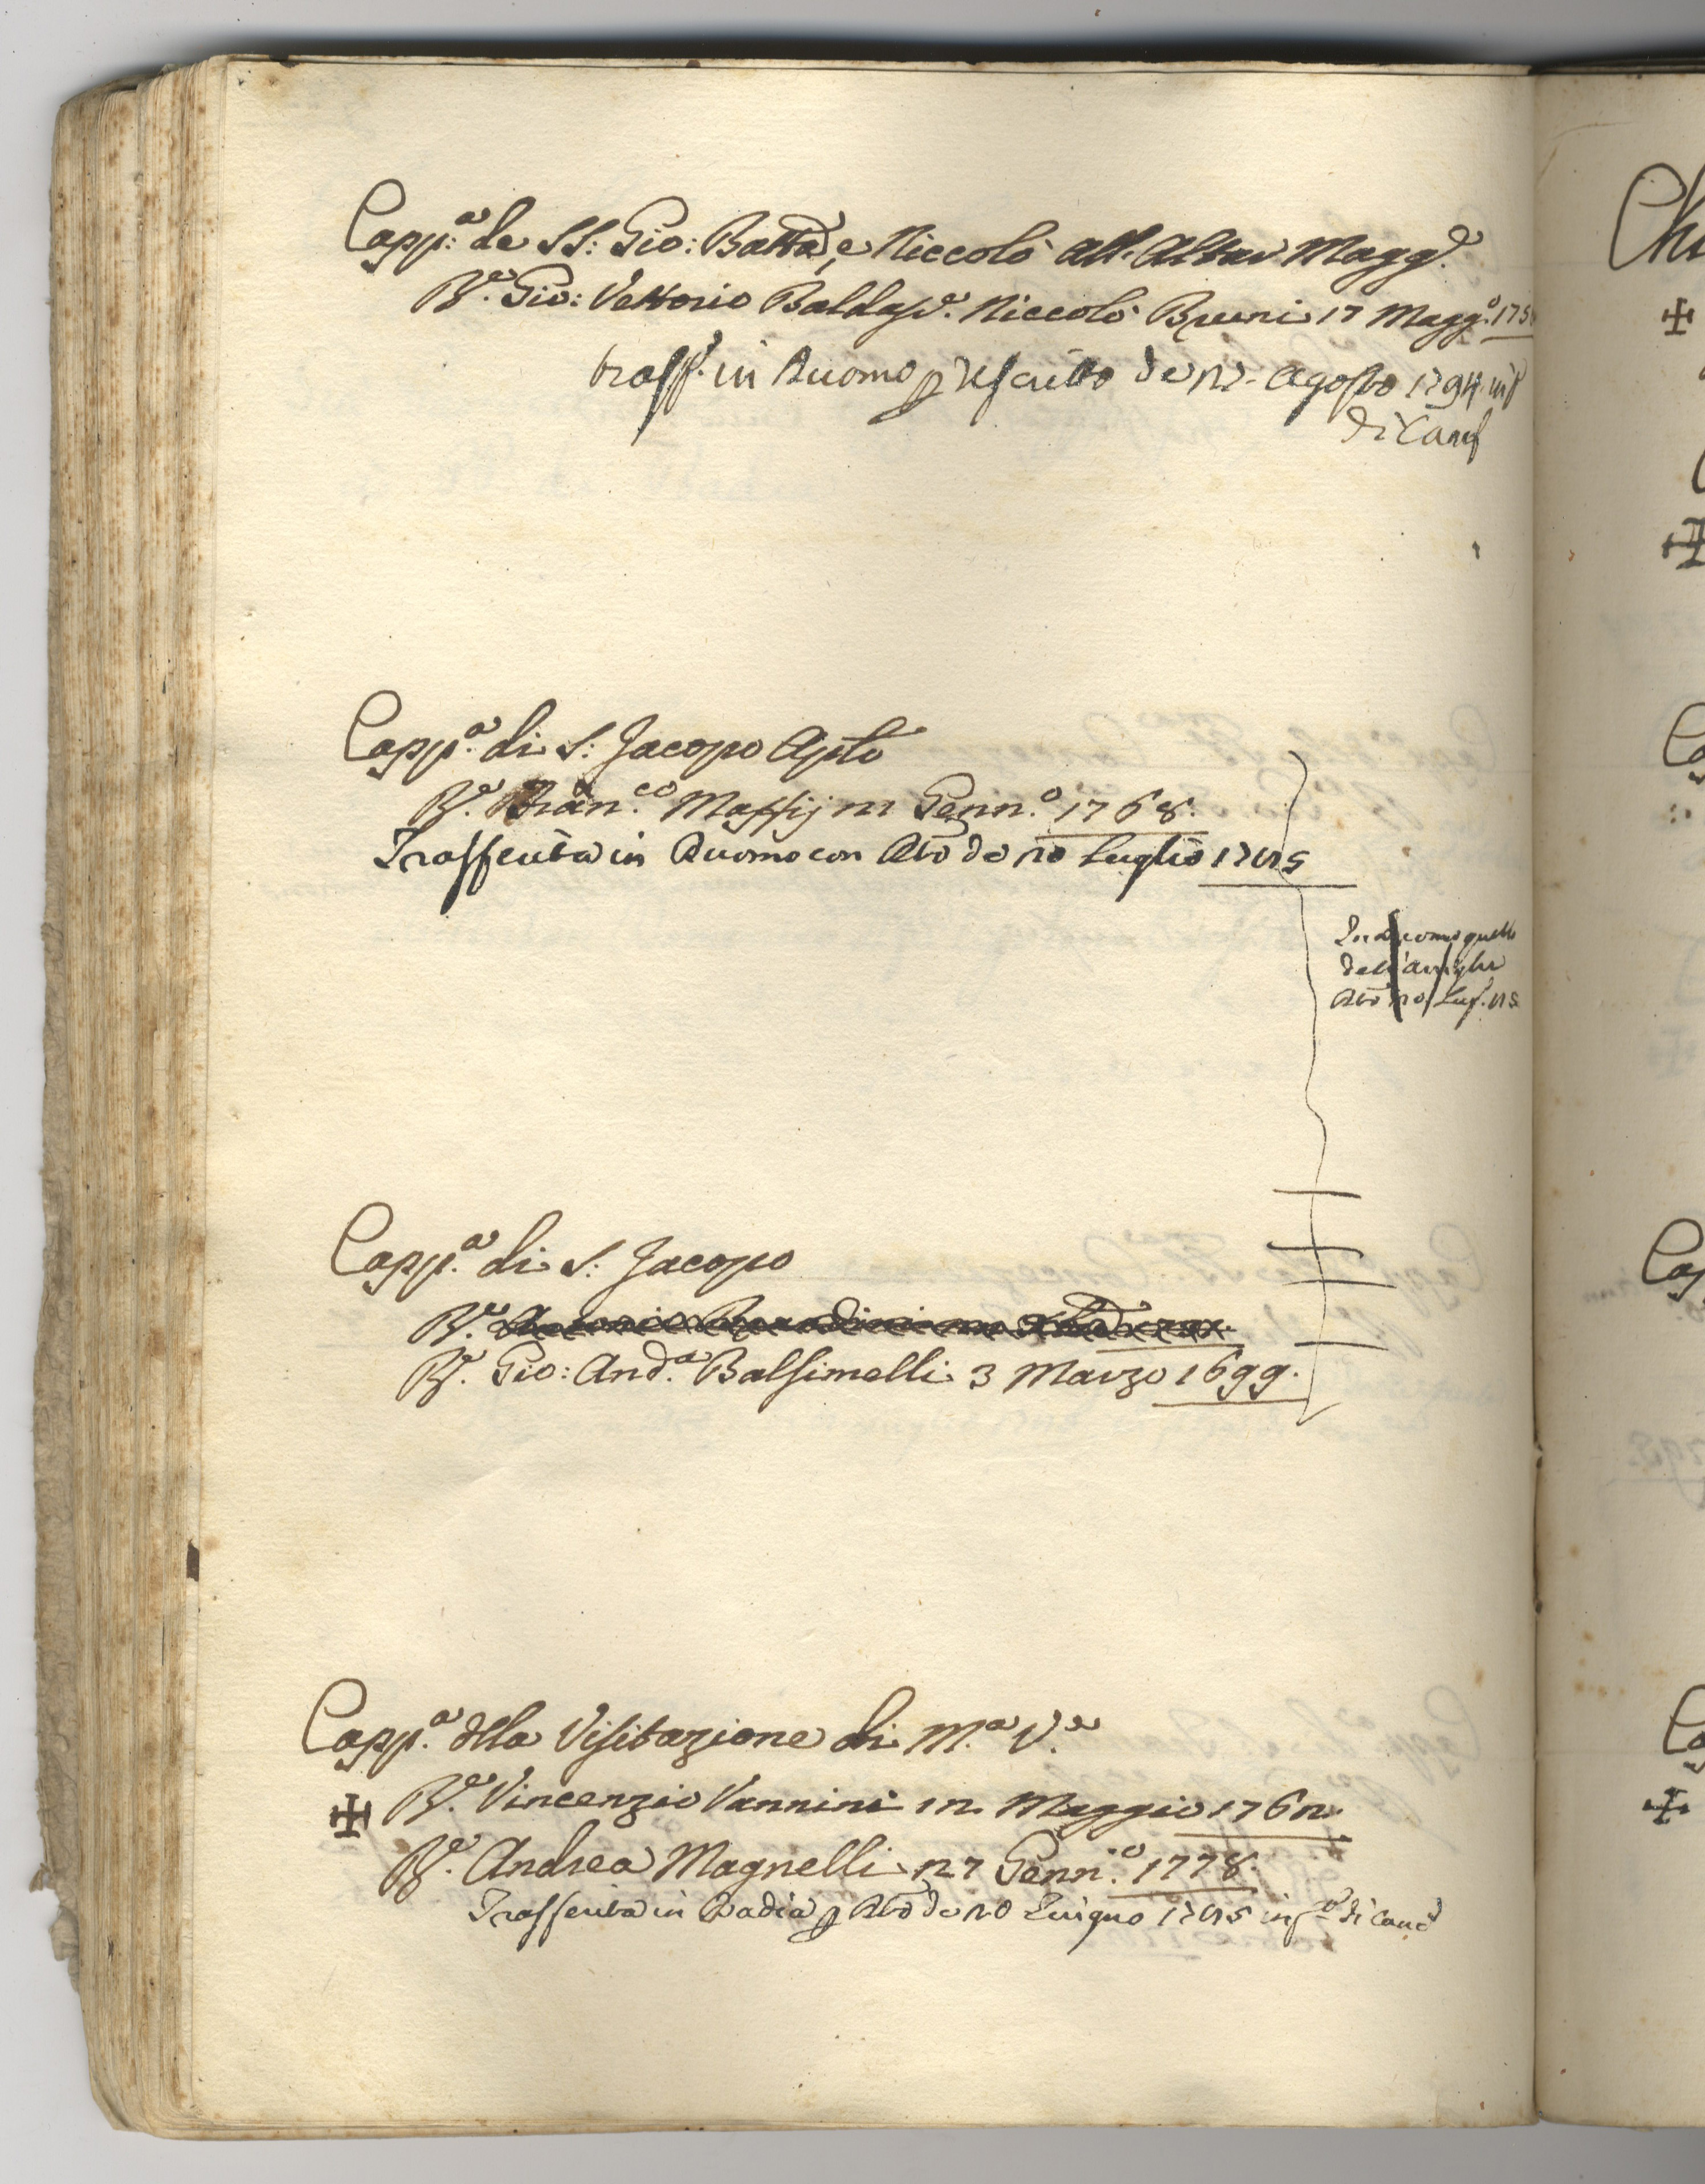 Capp:ª de SS: Gio: Batta, e Niccolò all' Altar Magg.e
R.e Gio: Vettorio Baldass.e Niccolò Bruni 17 Magg.o 175
trasf.ta in Duomo p Rescritto de 22 Agosto 1794 in f
di Canc
Capp.ª di S. Jacopo Apło
R.e Fran.co Maffij 21 Genn.o 1768.
Trasferita in Duomo con Atto de 20 Luglio 1785
In Duomo quella
dell'
Atto 20 Lug. 85
Capp.ª di S. Jacopo
R.e
R.e Gio: And.ª Balsimelli 3 Marzo 1699.
Capp.ª della Visitazione di M.ª V.e
R.e Vincenzio Vannini 12 Maggio 1762.
R.e Andrea Magnelli 27 Genn.o 1778.
Trasferita in Badia p Atto de 20 Giugno 1785 in f.ª di Canc